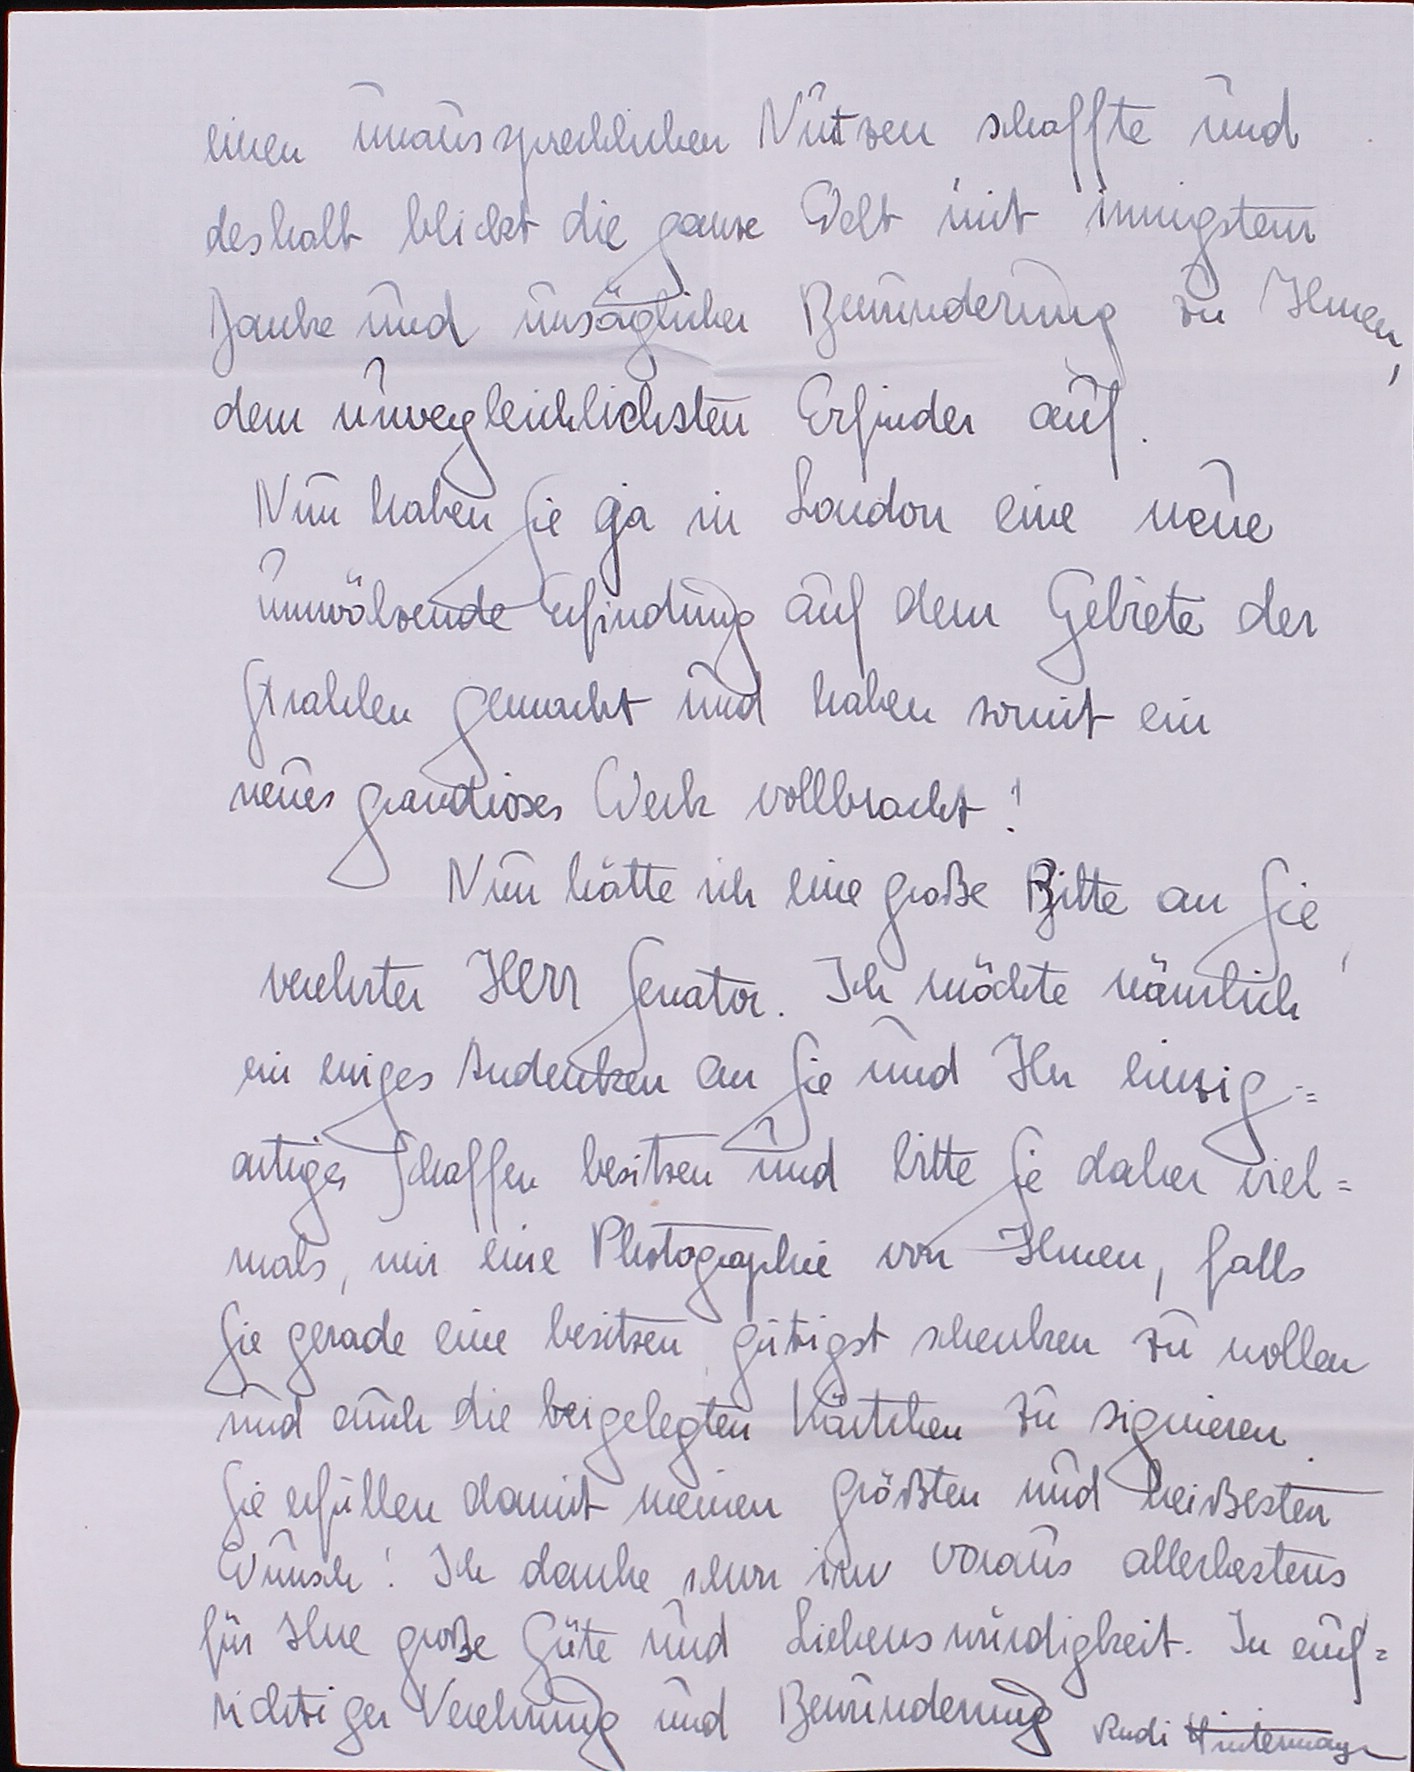 einen unaussprechlichen Nutzen schaffte und
deshalb blickt die ganze Welt mit innigstem
Danke und unsäglicher Bewunderung zu Ihnen,
dem unvergleichlichsten Erfinder auf.
Nun haben Sie ja in London eine neue
umwälzende Erfindung auf dem Gebiete der
Strahlen gemacht und haben somit ein
neues grandioses Werk vollbracht!
Nun hätte ich eine große Bitte an Sie,
verehrter Herr Senator. Ich möchte nämlich
ein ewiges Andenken an Sie und Ihr einzig=
artiges Schaffen besitzen und bitte Sie daher viel=
mals, mir eine Photographie von Ihnen, falls
Sie gerade eine besitzen, gütigst schenken zu wollen
und auch die beigelegten Kärtchen zu signieren.
Sie erfüllen damit meinen größten und heißesten
Wunsch! Ich danke schon im voraus allerbestens
für Ihre große Güte und Liebenswürdigkeit. In auf=
richtiger Verehrung und Bewunderung Rudi Hintermayr